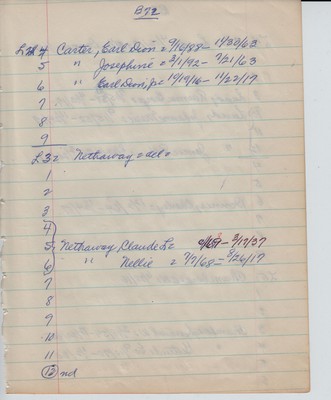 B72
4 Carter, Earl Dion = 9/16/88 - 11/30/62
5 " Josephine = 2/1/92 - 7/21/63
6 " Earl Dion, Jr = 10/19/16 - 11/22/17
7
8
9
L3 = Nethaway =
1
2
3
4
5 Nethaway, Claude L = - 3/17/37
6 " Nellie = 7/7/68 - 8/26/17
7
8
9
10
11
12 nd